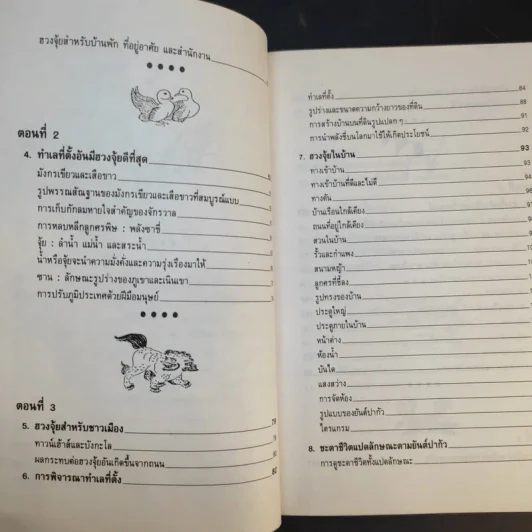 ฮวงจุ้ยสำหรับบ้านพัก ที่อยู่อาศัย และสำนักงาน
ตอนที่ 2
4. ทำเลที่ตั้งอันมีฮวงจุ้ยดีที่สุด
มังกรเขียวและเสือขาว
รูปพรรณสัณฐานของมังกรเขียวและเสือขาวที่สมบูรณ์แบบ
การเก็บกักลมหายใจสำคัญของจักรวาล
การหลบหลีกลูกศรพิษ : พลังซาชี่
จุ้ย : ลำน้ำ แม่น้ำ และสระน้ำ
น้ำหรือจุ้ยจะนำความมั่งคั่งและความรุ่งเรืองมาให้
ซาน : ลักษณะรูปร่างของภูเขาและเนินเขา
การปรับภูมิประเทศด้วยฝีมือมนุษย์
ตอนที่ 3
5. ฮวงจุ้ยสำหรับชาวเมือง 79
ทาวน์เฮ้าส์และบังกะโล
ผลกระทบต่อฮวงจุ้ยอันเกิดขึ้นจากถนน
6. การพิจารณาทำเลที่ตั้ง 82
ทำเลที่ตั้ง 84
รูปร่างและขนาดความกว้างยาวของที่ดิน 88
การสร้างบ้านบนที่ดินรูปแปลก ๆ 91
การนำพลังชี่บนโลกมาใช้ให้เกิดประโยชน์ 92
7. ฮวงจุ้ยในบ้าน 93
ทางเข้าบ้าน 93
ทางเข้าบ้านที่ดีและไม่ดี 94
ทางตัน
บ้านเรือนใกล้เคียง
ถนนที่อยู่ใกล้เคียง
สวนในบ้าน
รั้วและกำแพง
สนามหญ้า
ลูกศรที่ชี้ลง
รูปทรงของบ้าน
ประตูใหญ่
ประตูภายในบ้าน
หน้าต่าง
ห้องน้ำ
บันได
แสงสว่าง
การจัดห้อง
รูปแบบของยันต์ปากัว
ไตรแกรม
8. ชะตาชีวิตแปดลักษณะตามยันต์ปากัว
การดูชะตาชีวิตทั้งแปดลักษณะ